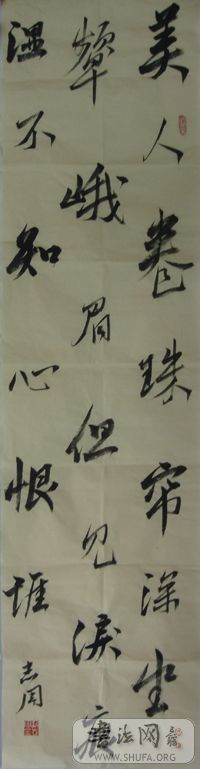 美人卷珠帘深坐
颦峨眉但见淚痕
湿不知心恨谁
志周
書法网
WWW.SHUFA.ORG